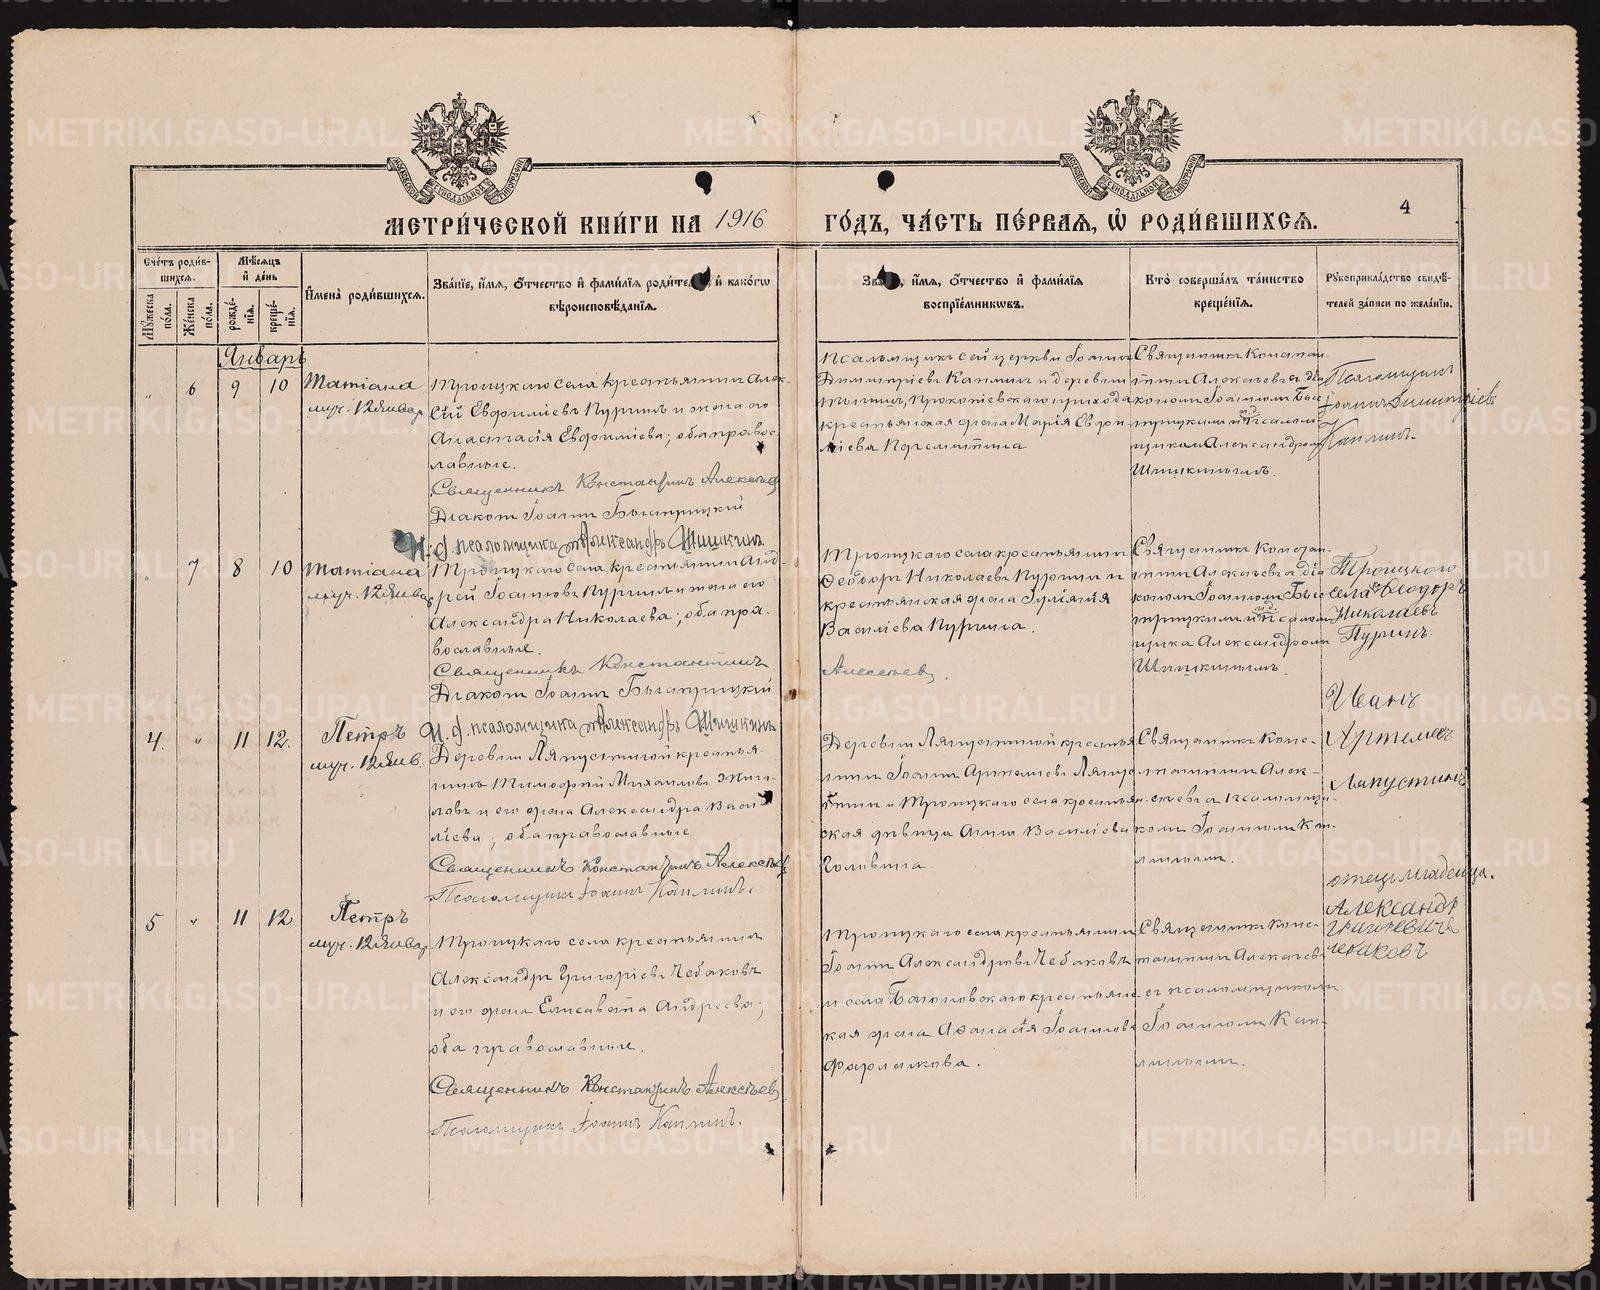 МЕТРИ́ЧЕСКОЙ КНИ́ГИ НА 1916
ГО́ДЪ, ЧА́СТЬ ПЕ́РВАЯ, Ѡ РОДИ́ВШИХСЯ.
4
Сче́тъ роди́в-
шихся.
Мꙋ́жеска
по́ла.
Же́нска
по́ла.
Мѣ́сяцъ
и҆ де́нь
рожде́-
нїя.
креще́-
нїя.
И҆мена̀ роди́вшихся.
Зва́нїе, и҆́мя, ѻ҆́тчество и҆ фами́лїя роди́те и҆ како́гѡ
вѣроисповѣ́данїя.
Зва и҆́мя, ѻ҆́тчество и҆ фами́лїя
воспрїе́мниковъ.
Кто̀ соверша́лъ та́инство
креще́нїя.
Рꙋкоприкла́дство свидѣ́-
телей за́писи по жела́нїю.
Январь
6 9 10 Татіана
муч. 12 Январ
Троицкаго села крестьянинъ Алек-
сій Евфиміевъ Пуринъ и жена его
Анастасія Евфиміева; оба правос-
лавные.
Священникъ Константинъ Алексѣев
Діаконъ Іоаннъ
И. д. псаломщика Александръ Шишкинъ
Псаломщикъ сей церкви Іоаннъ
Димитріевъ Каплинъ и деревни
Прокопіевскаго прихода
крестьянская жена Марія Евфи-
міева
Священникъ Констан-
тинъ Алексѣевъ съ діа
кономъ Іоанномъ
и.д. псалом-
щикомъ Александромъ
Шишкинымъ.
Псаломщикъ
Іоаннъ Димитріевъ
Каплинъ.
7 8 10 Татіана
муч. 12 Январ
Троицкаго села крестьянинъ Анд-
рей Іоанновъ Пуринъ и жена его
Александра Николаева; оба пра-
вославные.
Священникъ Константинъ
Діаконъ Іоаннъ
И. д. псаломщика Александръ Шишкинъ
Троицкаго села крестьянинъ
Ѳеодоръ Николаевъ Пуринъ и
крестьянская жена Іуліанія
Василіева Пурина.
Алексѣев.
Священникъ Констан-
тинъ Алексѣевъ съ діа
кономъ Іоанномъ
и.д. псалом
щика Александромъ
Шишкинымъ.
Троицкаго
села Ѳеодоръ
Николаевъ
Пуринъ.
4. " 11 12. Петръ
муч. 12 Янв.
Деревни Ляпустиной крестья-
нинъ Тимоѳей Михаиловъ
и его жена Александра Васи
ліева; оба православные
Священникъ Константинъ Алексѣев
Псаломщикъ Іоаннъ Каплинъ.
Деревни Ляпустиной крестья
нинъ Іоаннъ Артемьевъ Ляпу
стинъ и Троицкаго села крестьян-
ская дѣвица Анна Василіева
Головина.
Священникъ Конс-
тантинъ Алек-
сѣевъ съ псаломщи-
комъ Іоанномъ Кап-
линымъ.
Иванъ
Артемевъ
Лапустинъ
5 " 11 12 Петръ
муч. 12 Январ
Троицкаго села крестьянинъ
Александръ Григоріевъ Чебаковъ
и его жена Елисавета Андреева;
оба православные.
Священникъ Константинъ Алексѣев
Псаломщикъ Іоаннъ Каплинъ.
Троицкаго села крестьянинъ
Іоаннъ Александровъ Чебаковъ
и села крестьянс-
кая жена Аѳанасія Іоаннова
Священникъ Конс-
тантинъ Алексѣевъ
съ псаломщикомъ
Іоанномъ Кап-
линымъ.
отецъ младенца.
Александр
Григоревичь
Чебаковъ
METRIKI.GASO-URAL.RU